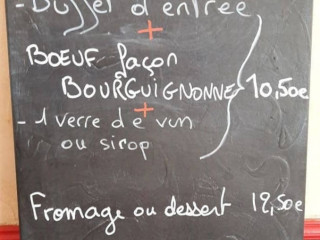 - Buffet d'entrée
+
BOEUF façon
BOURGUIGNONNE 10,50€
+
- 1 verre de vin
ou sirop
Fromage ou dessert 12,50€